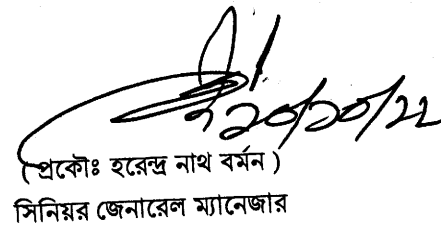 ২০/১০/২২
(প্রকৌঃ হরেন্দ্র নাথ বর্মন )
সিনিয়র জেনারেল ম্যানেজার